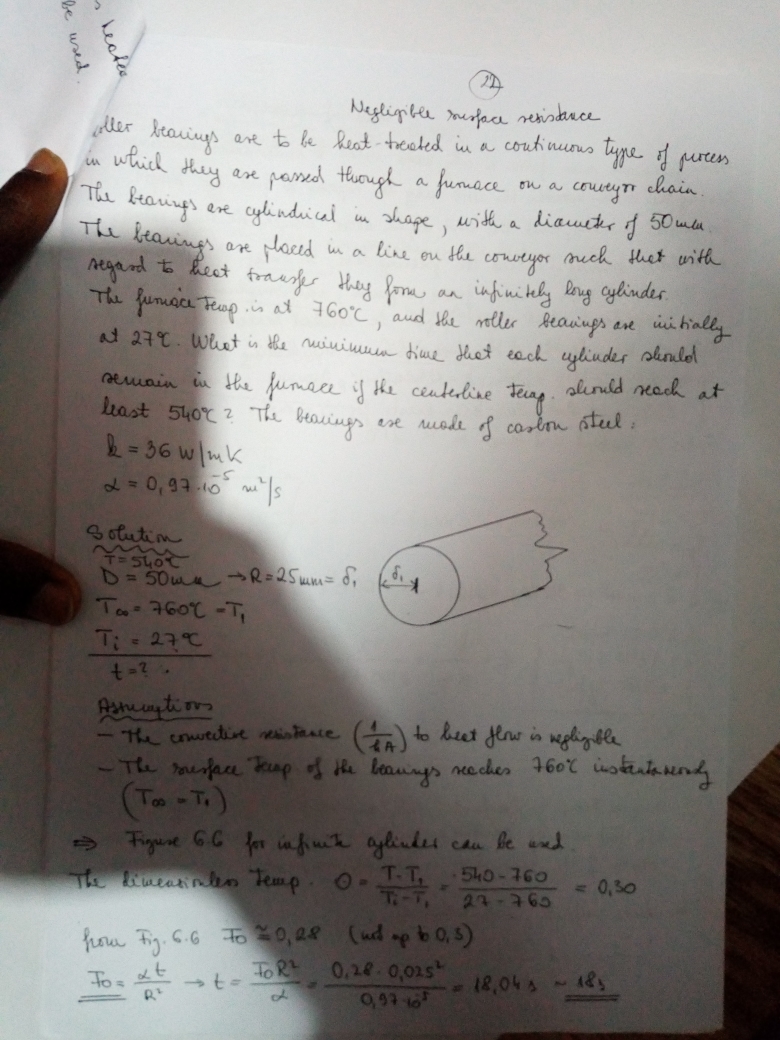 s heated
be used.
22
Negligible surface resistance
oller bearings are to be heat-treated in a continuous type of process
in which they are passed through a furnace on a conveyor chain.
The bearings are cylindrical in shape, with a diameter of 50mm.
The bearings are placed in a line on the conveyor such that with
regard to heat transfer they form an infinitely long cylinder.
The furnace temp. is at 760°C, and the roller bearings are initially
at 27°C. What is the minimum time that each cylinder should
remain in the furnace if the centerline temp. should reach at
least 540°C? The bearings are made of carbon steel:
k = 36 W/mK
α = 0,97·10⁻⁵ m²/s
Solution
T = 540°C
D = 50mm → R = 25mm = δ₁
δ₁
T∞ = 760°C = T₁
Ti = 27°C
t = ?
Assumptions
– The convective resistance (1/hA) to heat flow is negligible
– The surface temp of the bearings reaches 760°C instantaneously
(T∞ = T₁)
⇒ Figure 6.6 for infinite cylinder can be used.
The dimensionless temp. Θ = (T-T₁)/(Ti-T₁) = (540-760)/(27-760) = 0,30
from Fig. 6.6 Fo ≅ 0,28 (not up to 0,3)
Fo = αt/R² → t = FoR²/α = 0,28·0,025²/0,97·10⁻⁵ = 18,04s ~ 18s